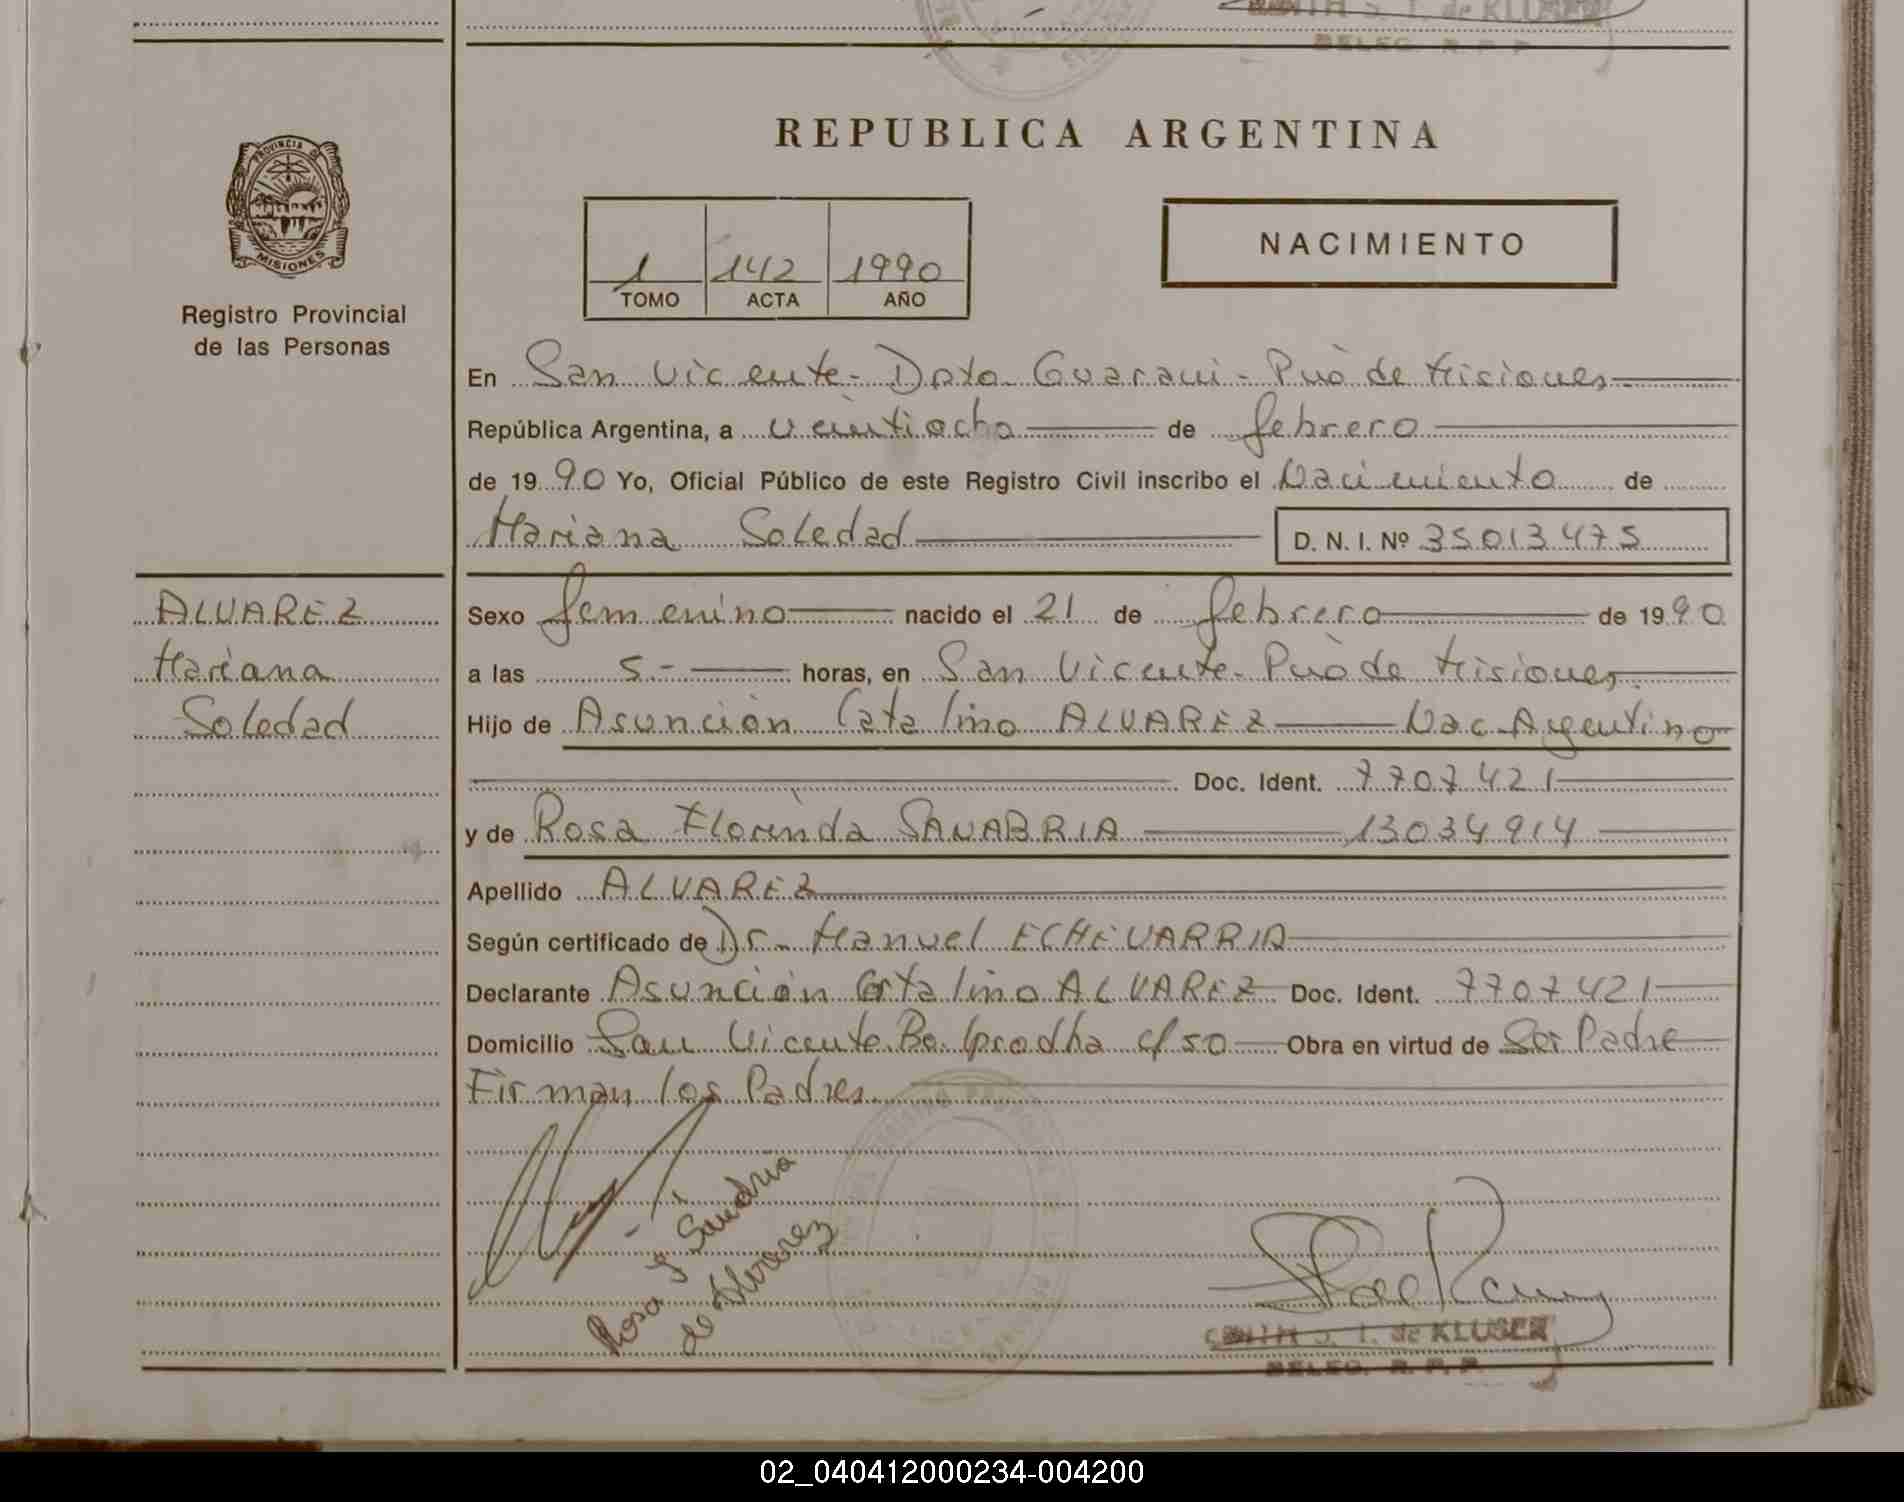 de KLUSER
DELEG. R. P. P.
REPUBLICA ARGENTINA
PROVINCIA DE
MISIONES
Registro Provincial
de las Personas
1 142 1990
TOMO ACTA AÑO
NACIMIENTO
En San Vicente- Dpto Guarani - Pcia de Misiones
República Argentina, a veintiocho de febrero
de 1990 Yo, Oficial Público de este Registro Civil inscribo el Nacimiento de
Mariana Soledad D. N. I. Nº 35013475
ALVAREZ
Mariana
Soledad
Sexo femenino nacido el 21 de febrero de 1990
a las 5.- horas, en San Vicente- Pcia de Misiones
Hijo de Asunción Catalino ALVAREZ Nac Argentino
Doc. Ident. 7707421
y de Rosa Florinda SANABRIA 13034914
Apellido ALVAREZ
Según certificado de Dr. Manuel ECHEVARRIA
Declarante Asunción Catalino ALVAREZ Doc. Ident. 7707421
Domicilio San Vicente Bo. c/ 50 Obra en virtud de Ser Padre
Firman los Padres
Rosa F
de Alvarez
J. I. de KLUSER
DELEG. R. P. P.
02_040412000234-004200